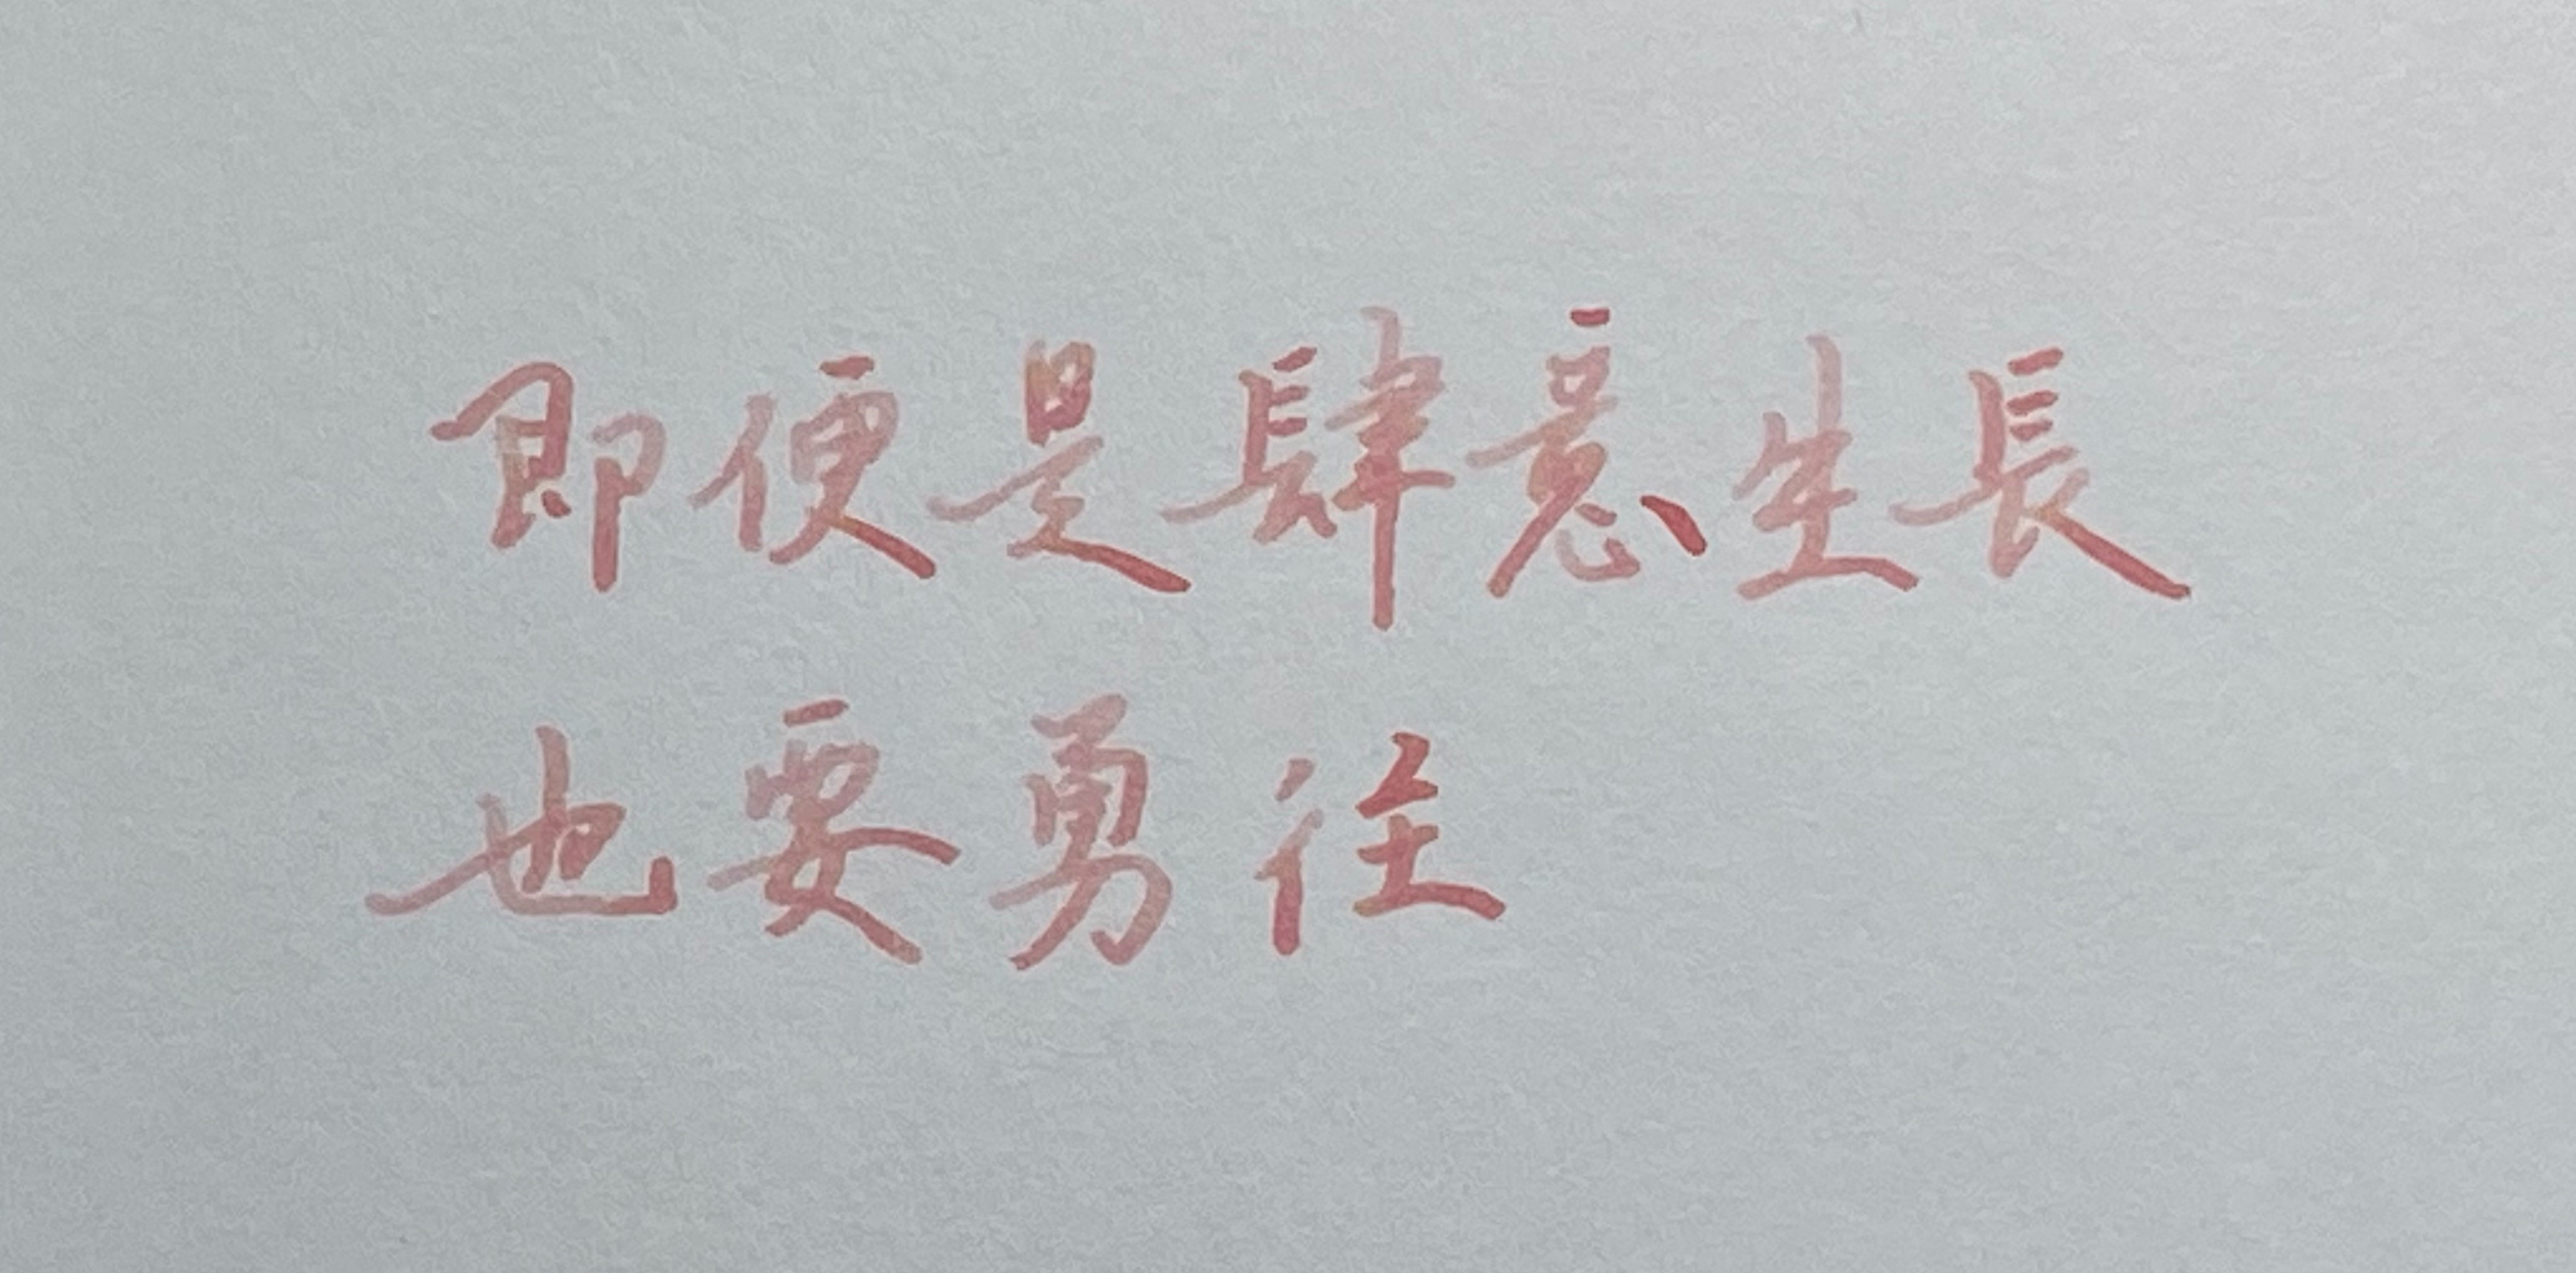 即便是肆意生長
也要勇往